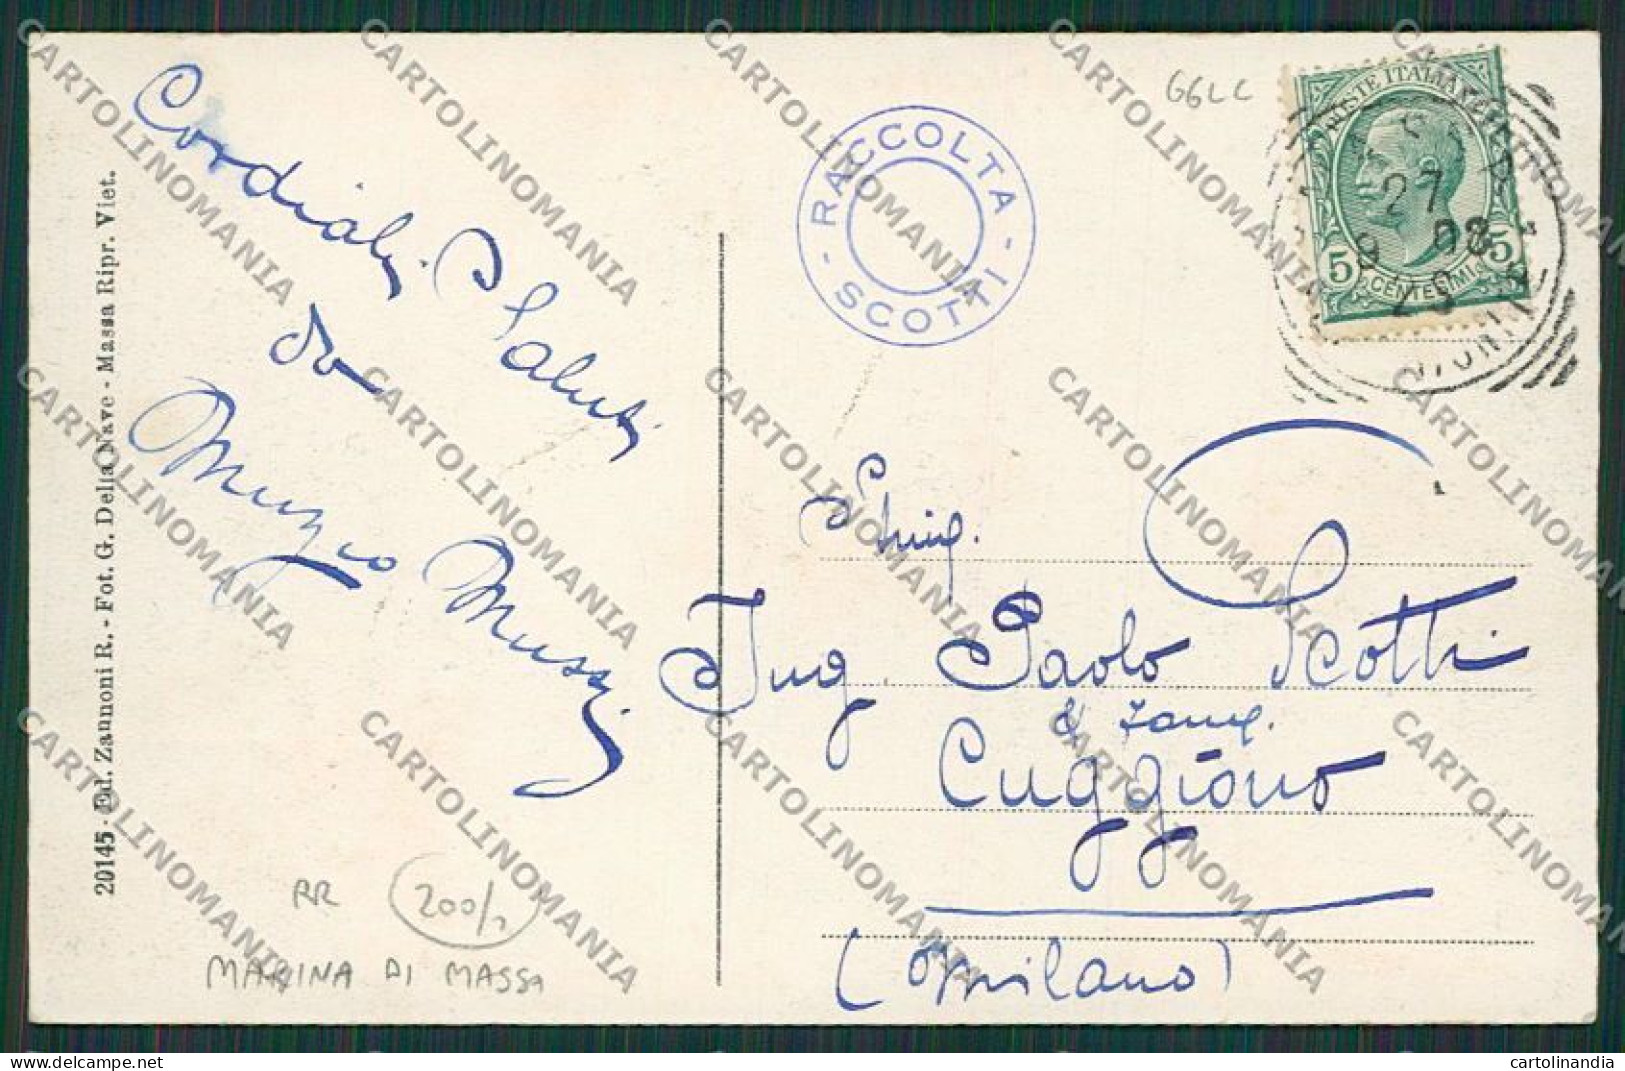 Cordiali Saluti
da
Muzio Mussi
20145 - Ed. Zannoni R. - Fot. G. Della Nave - Massa Ripr. Viet.
RR
200/
MARINA DI MASSA
RACCOLTA - SCOTTI -
G6LC
POSTE ITALIANE
5 CENTESIMI 5
27
9 08
Ing Paolo Scotti
& Famig.
Cuggiono
(Milano)
CARTOLINOMANIA
cartolinandia